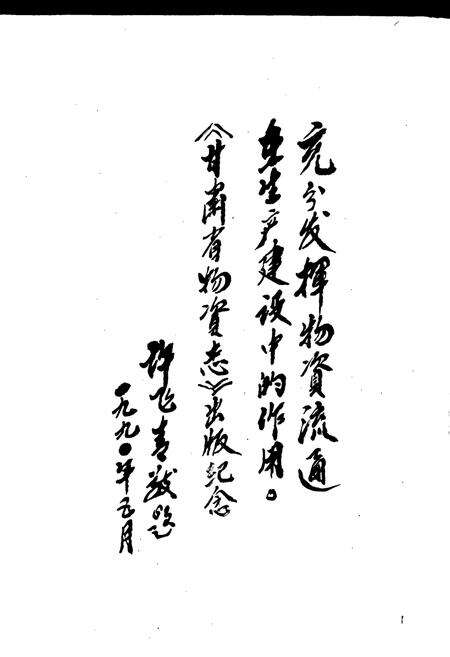 充分发挥物資流通
在生产建设中的作用。
《甘肃省物資志》出版纪念
许飞青敬题
一九九〇年五月
1